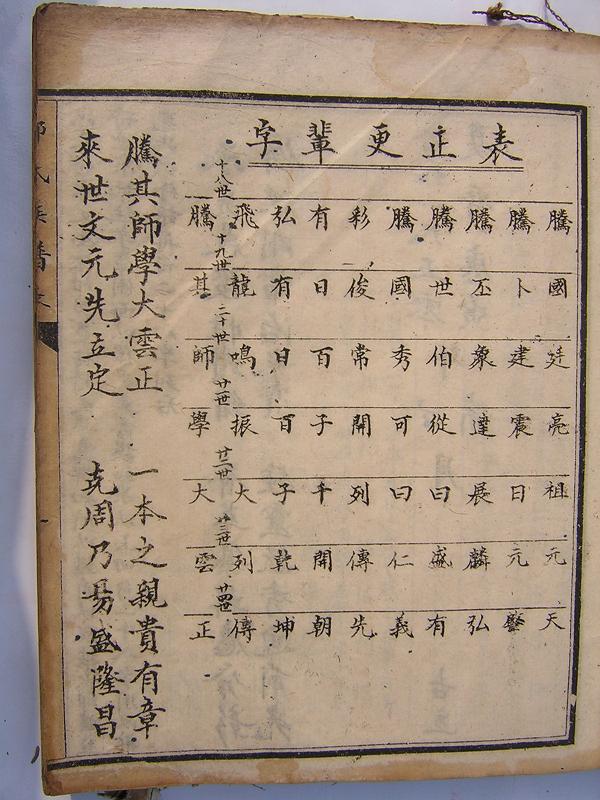 字輩更正表
騰國廷亮祖元天
騰卜建震日元
騰丕象達展麟弘
騰世伯從曰盛有
騰國秀可曰仁義
彩俊常開列傳先
有日百子千開朝
弘有日百子乾坤
飛龍鳴振大列傳
十八世 十九世 二十世 廿一世 廿二世 廿三世 廿四世
騰其師學大雲正
騰其師學大雲正 一本之親貴有章
來世文元先立定 克周乃易盛隆昌